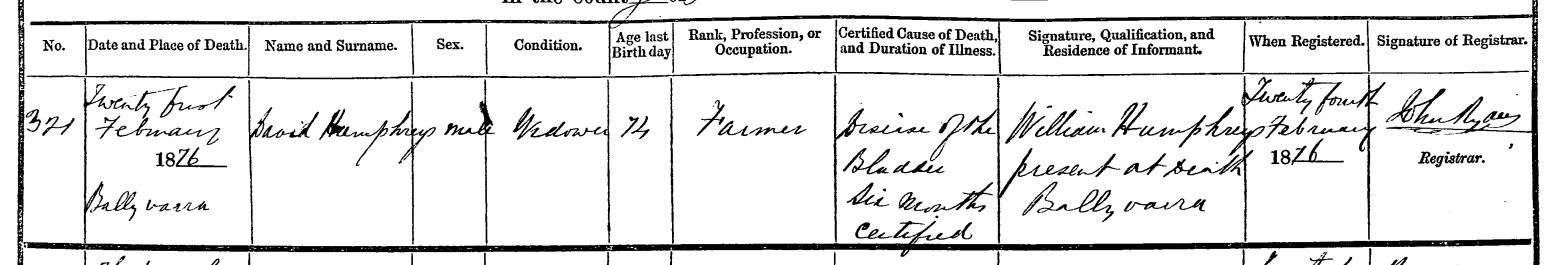 No.
Date and Place of Death.
Name and Surname.
Sex.
Condition.
Age last
Birth day
Rank, Profession, or
Occupation.
Certified Cause of Death,
and Duration of Illness.
Signature, Qualification, and
Residence of Informant.
When Registered.
Signature of Registrar.
321
Twenty first
February
1876
Ballyvarra
David Humphreys
male
Widower
74
Farmer
Disease of the
Bladder
Six Months
Certified
William Humphreys
present at Death
Ballyvarra
Twenty fourth
February
1876
John
Registrar.